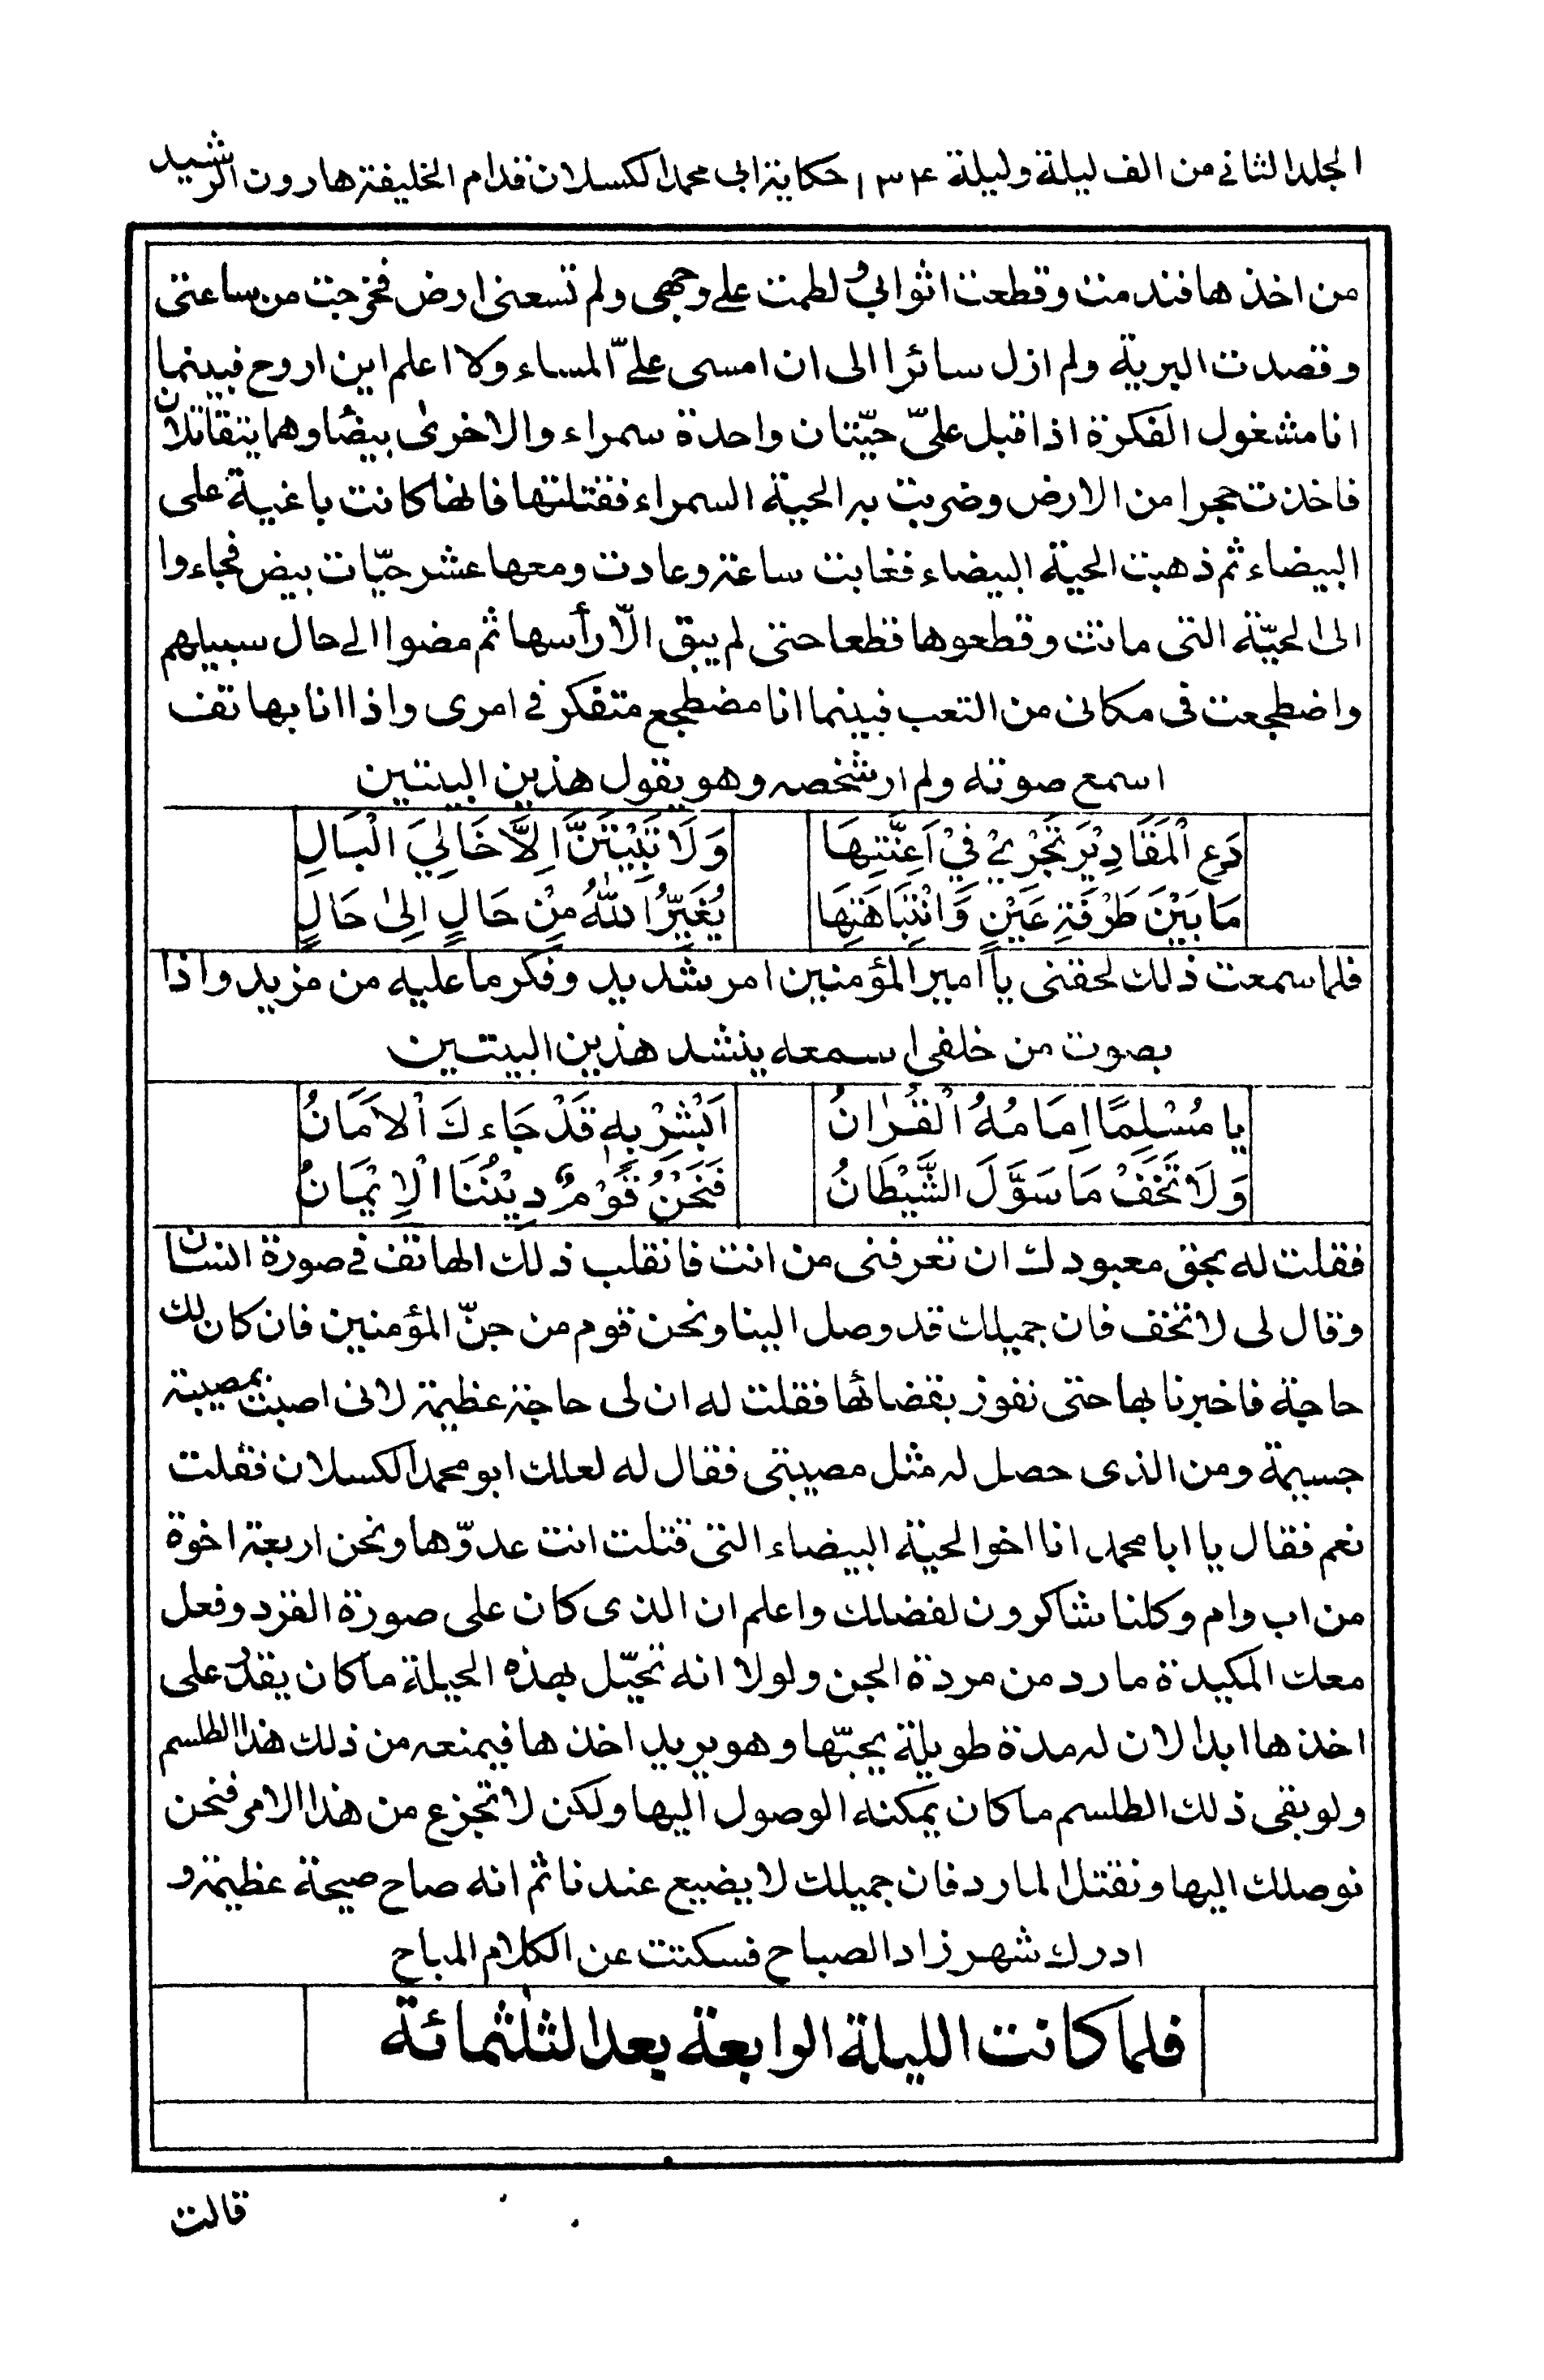 المجلد الثاني من الف ليلة وليلة ١٣٤ حكاية ابي محمد الكسلان قدام الخليفة هارون الرشيد
من اخذها فندمت وقطعت اثوابي ولطمت على وجهى ولم تسعنى ارض فخرجت من ساعتى
وقصدت البرية ولم ازل سائرا الى ان امسى علىّ المساء ولا اعلم اين اروح فبينما
انا مشغول الفكرة اذ اقبل علىّ حيّتان واحدة سمراء والاخرىٰ بيضا وهما يتقاتلان
فاخذت حجرا من الارض وضربت به الحية السمراء فقتلتها فانها كانت باغية على
البيضاء ثم ذهبت الحية البيضاء فغابت ساعة وعادت ومعها عشر حيّات بيض فجاءوا
الى الحيّة التى ماتت وقطعوها قطعا حتى لم يبق الّا رأسها ثم مضوا الى حال سبيلهم
واضطجعت فى مكانى من التعب فبينما انا مضطجع متفكر فى امرى واذا انا بهاتف
اسمع صوته ولم ار شخصه وهو يقول هذين البيتين
دَعِ الْمَقَادِيْرَ تَجْرِيْ فِيْ اَعِنَّتِهَا وَلَا تَبِيْتَنَّ اِلَّا خَالِيَ الْبَالِ
مَا بَيْنَ طَرْفَةِ عَيْنٍ وَانْتِبَاهَتِهَا يُغَيِّرُ اللّٰهُ مِنْ حَالٍ اِلىٰ حَالٍ
فلما سمعت ذلك لحقنى يا امير المؤمنين امر شديد وفكر ما عليه من مزيد واذا
بصوت من خلفى اسمعه ينشد هذين البيتين
يا مُسْلِمًا اِمَامُهُ الْقُرْاٰنُ اَبْشِرْ بِهٖ قَدْ جَاءكَ الْاَمَانُ
وَلَا تَخَفْ مَا سَوَّلَ الشَّيْطَانُ فَنَحْنُ قَوْمٌ دِيْنُنَا الْاِيْمَانُ
فقلت له بحق معبودك ان تعرفنى من انت فانقلب ذلك الهاتف فى صورة انسان
وقال لى لا تخف فان جميلك قد وصل الينا ونحن قوم من جنّ المؤمنين فان كان لك
حاجة فاخبرنا بها حتى نفوز بقضائها فقلت له ان لى حاجة عظيمة لانى اصبت بمصيبة
جسيمة ومن الذى حصل له مثل مصيبتى فقال له لعلك ابو محمد الكسلان فقلت
نعم فقال يا ابا محمد انا اخو الحية البيضاء التى قتلت انت عدوّها ونحن اربعة اخوة
من اب وام وكلنا شاكرون لفضلك واعلم ان الذى كان على صورة القرد وفعل
معك المكيدة مارد من مردة الجن ولولا انه تحيّل بهذه الحيلة ما كان يقدر على
اخذها ابدا لان له مدة طويلة يحبّها وهو يريد اخذها فيمنعه من ذلك هذا الطلسم
ولو بقى ذلك الطلسم ما كان يمكنه الوصول اليها ولكن لا تجزع من هذا الامر فنحن
نوصلك اليها ونقتل المارد فان جميلك لا يضيع عندنا ثم انه صاح صيحة عظيمة و
ادرك شهرزاد الصباح فسكتت عن الكلام المباح
فلما كانت الليلة الرابعة بعد الثلٰثمائة
قالت